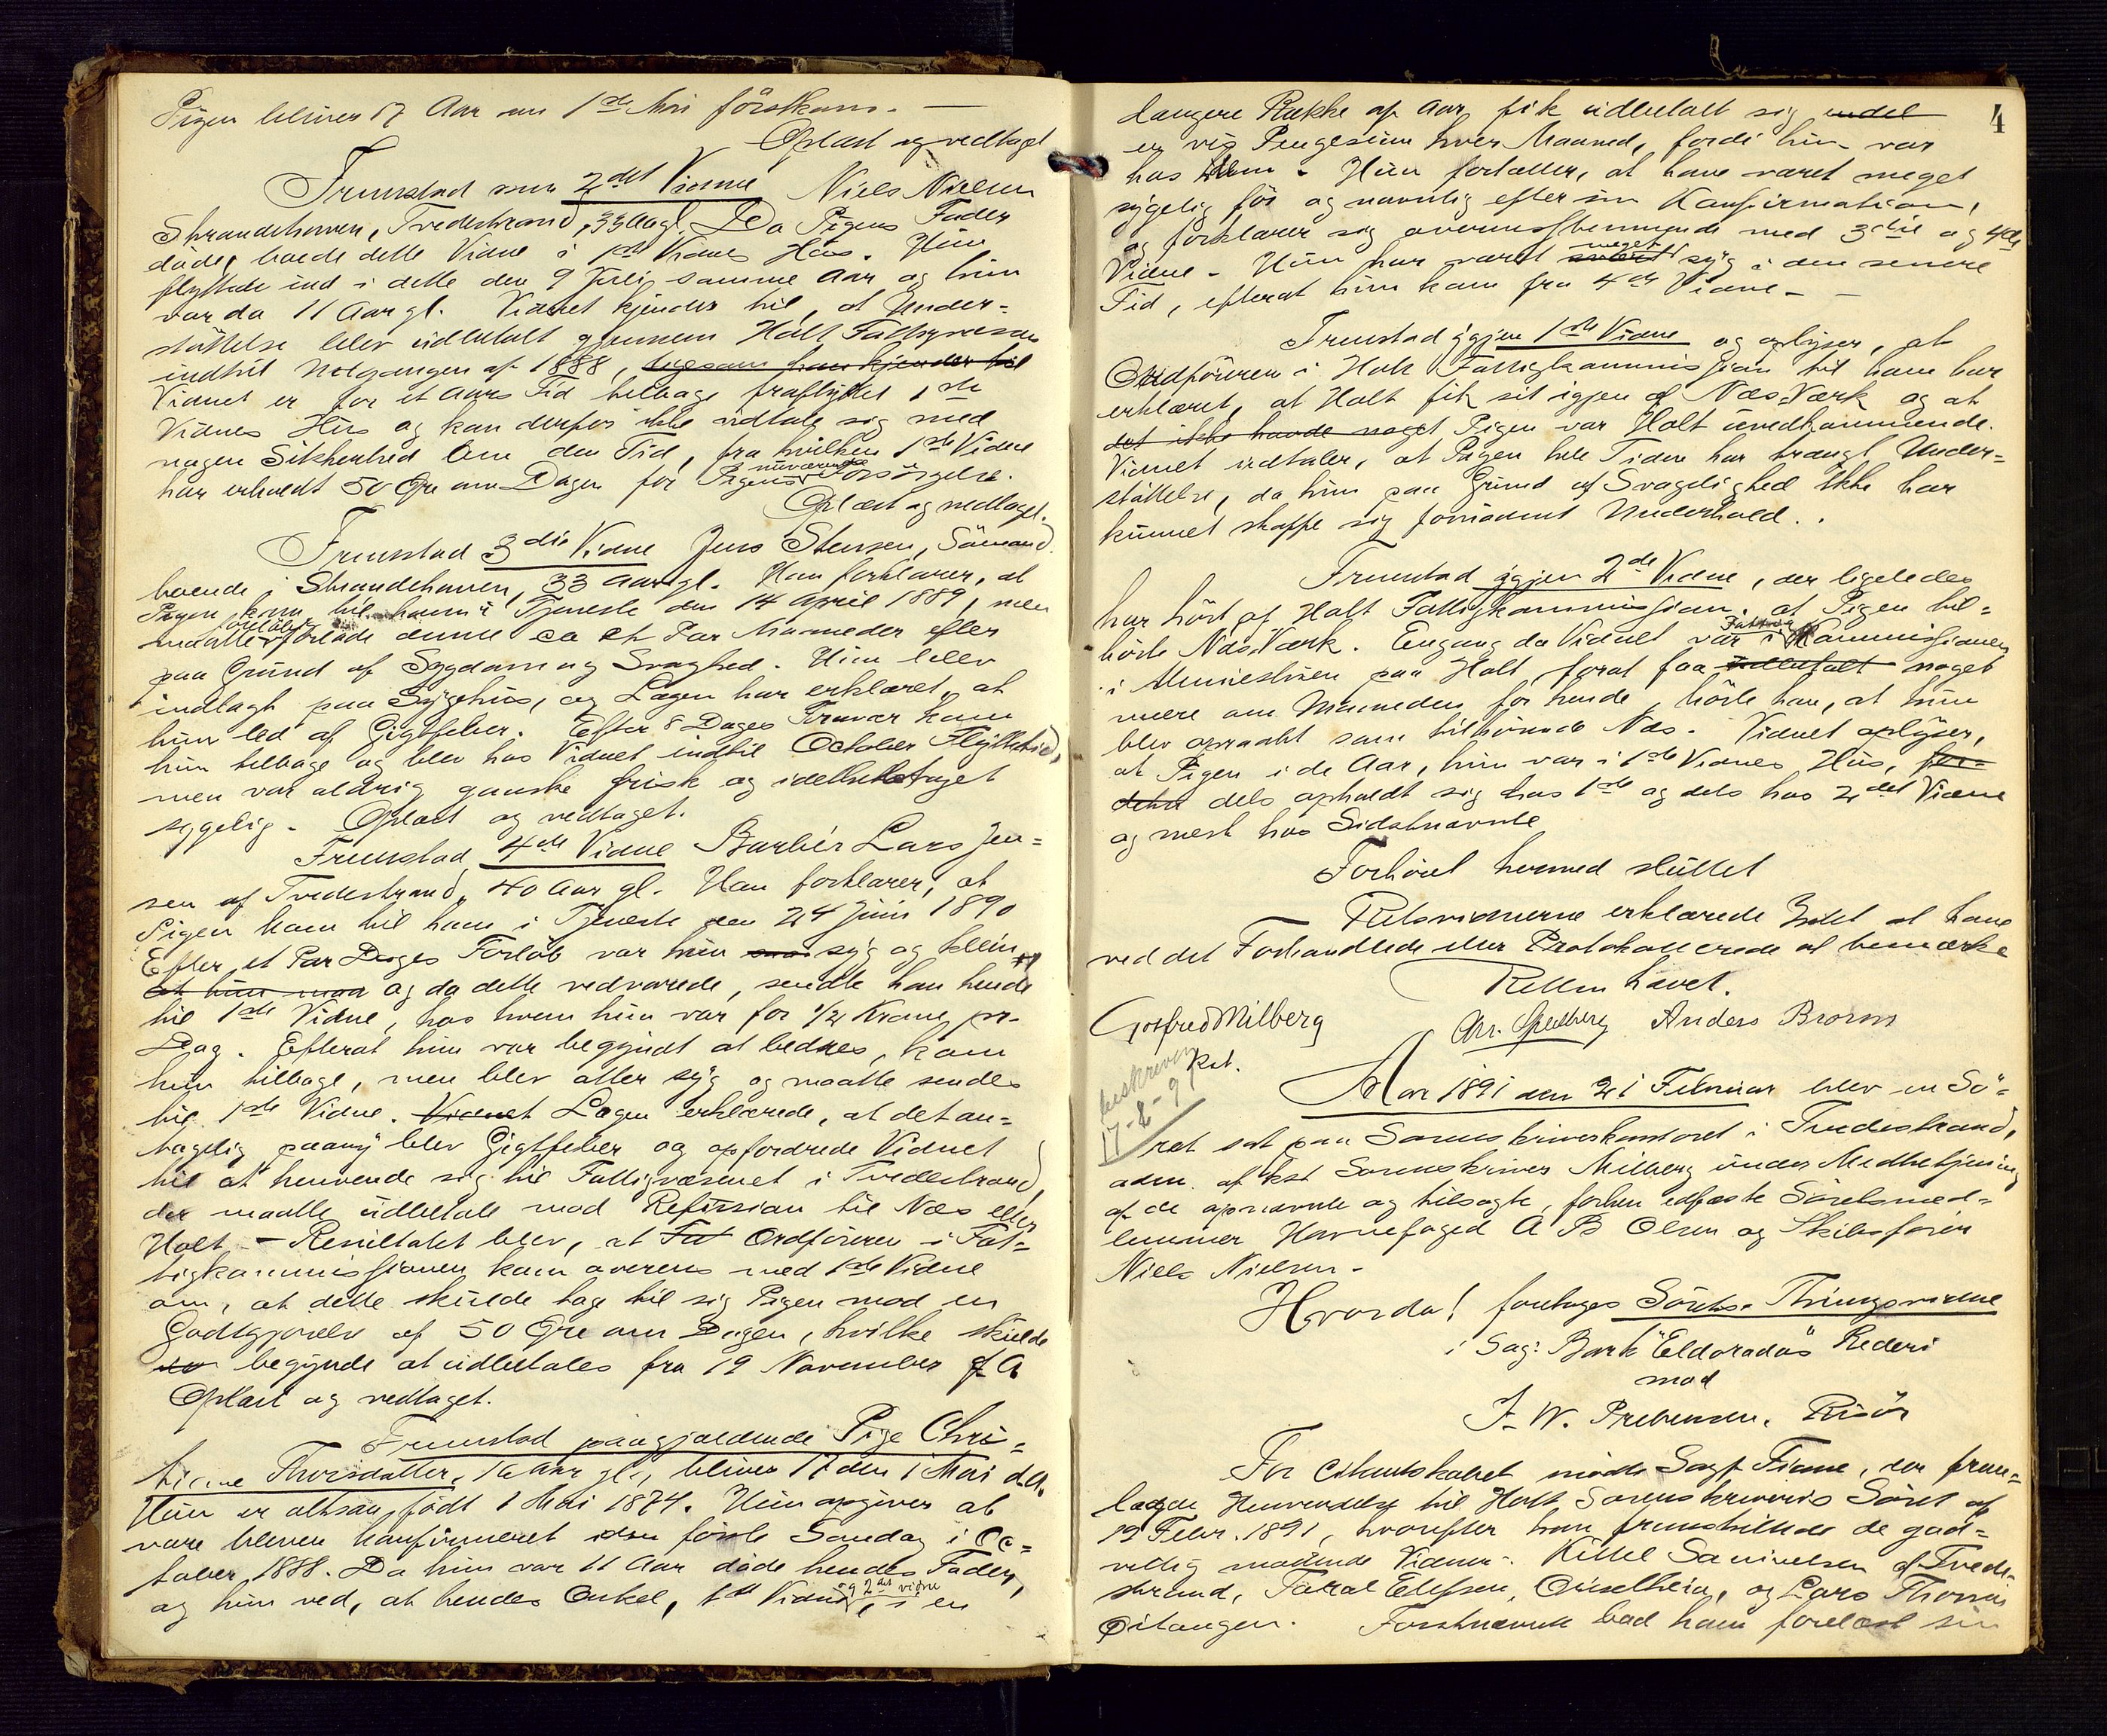 Pigen bliver 17 Aar nu 1ste Mai förstkom. —
Oplæst og vedtaget
Fremstod som 2det Vidne Niels Nielsen
Strandehaven, Tvedestrand, 33 Aar gl. Da Pigens Fader
döde, boede dette Vidne i 1ste Vidnes Hus. Hun
flyttede ind i dette den 9 Juli samme Aar og hun
var da 11 Aar gl. Vidnet kjender til, at Under=
stöttelse blev udbetalt gjennem Holt Fattigvæsen
indtil Udgangen af 1888, ligesom han kjender til
Vidnet er for et Aars Tid tilbage fraflyttet 1ste
Vidnes Hus og kan derfor ikke udtale sig med
nogen Sikkerhed om den Tid, fra hvilken 1ste Vidne
har erholdt 50 Öre om Dagen for Pigens nuværende Forsörgelse.
Oplæst og vedtaget.
Fremstod 3die Vidne Jens Stensen, Sömand
boende i Strandehaven, 33 Aar gl. Han forklarer, at
Pigen kom til ham i Tjeneste den 14 April 1889, men
maatte forlade denne ca et Par Maaneder efter
paa Grund af Sygdom og Svaghed. Hun blev
indlagt paa Sygehus, og Lægen har erklæret, at
hun led af Gigtfeber. Efter 8 Dages Fravær kom
hun tilbage og blev hos Vidnet indtil October Flyttetid,
men var aldrig ganske frisk og idethele taget
sygelig. Oplæst og vedtaget.
Fremstod 4de Vidne Barbér Lars Jen=
sen af Tvedestrand, 40 Aar gl. Han forklarer, at
Pigen kom til ham i Tjeneste den 24 Juni 1890
Efter et Par Dages Forlöb var hun saa syg og klein,
at hun maa og da dette vedvarede, sendte han hende
til 1ste Vidne, hos hvem hun var for 1/2 Krone pr.
Dag. Efterat hun var begyndt at bedres, kom
hun tilbage, men blev atter syg og maatte sendes
til 1ste Vidne. Vidnet Lægen erklærede, at det an=
tagelig paany blev Gigtfeber og opfordrede Vidnet
til at henvende sig til Fattigvæsenet i Tvedestrand,
der maatte udbetale mod Refusion til Næs eller
Holt — Resultatet blev, at Fat Ordföreren i Fat=
tigkommissionen kom overens med 1ste Vidne
om, at dette skulde tage til sig Pigen mod en
Godtgjörelse af 50 Öre om Dagen, hvilke skulde
begynde at udbetales fra 19 November f. A
Oplæst og vedtaget.
Fremstod paagjældende Pige Chri=
stiane Thorsdatter, 16 Aar gl., bliver 17 den 1 Mai d.A.
Hun er altsaa födt 1 Mai 1874. Hun opgiver at
være bleven konfirmeret den förste Söndag i Oc=
tober 1888. Da hun var 11 Aar döde hendes Fader,
og hun ved, at hendes Onkel, 1ste Vidne og 2det Vidne, i en
4
længere Række af Aar fik udbetalt sig endel
en vis Pengesum hver Maaned, fordi hun var
hos dem. Hun fortæller, at have været meget
sygelig för og navnlig efter sin Konfirmation,
og forklarer sig overensstemmende med 3die og 4de
Vidne. Hun har været svært meget syg i den senere
Tid, efterat hun kom fra 4de Vidne. —
Fremstod igjen 1ste Vidne og oplyser, at
Ordföreren i Holt Fattigkommission til ham har
erklæret, at Holt fik sit igjen af Næs Værk og at
det ikke havde noget Pigen var Holt uvedkommende.
Vidnet udtaler, at Pigen hele Tiden har trængt Under=
stöttelse, da hun paa Grund af Svagelighed ikke har
kunnet skaffe sig fornödent Underhold.
Fremstod igjen 2det Vidne, der ligeledes
har hört af Holt Fattigkommission, at Pigen til=
hörte Næs Værk. Engang da Vidnet var i Fattig Kommissionen
i Ministeriet paa Holt, forat faa udbetalt noget
mere om Maaneden for hende, hörte han, at hun
blev opraabt som tilhörende Næs. Vidnet oplyser,
at Pigen i de Aar, hun var i 1ste Vidnes Hus, for=
dels opholdt sig hos 1ste og dels hos 2det Vidne
og mest hos Sidstnævnte
Forhöret hermed sluttet
Retsvidnerne erklærede Intet at have
ved det Forhandlede eller Protokollerede at bemærke
Retten hævet.
Gotfred Milberg
Kst.
Chr. Spedberg Anders Brorsen
beskreven
17-2-91
Aar 1891 den 21 Februar blev en Sö=
ret sat paa Sorenskriverkontoret i Tvedestrand,
adm. af kst Sorenskriver Milberg under Medbetjening
af de opnævnte og tilsagte, forhen edfæste Söretsmed=
lemmer Havnefoged A B Olsen og Skibsförer
Niels Nielsen.
Hvorda! foretoges Sörets-Thingsvidne
i Sag: Bark "Eldorados" Rederi
mod
J. W. Prebensen, Risör
For Citantskabet mödte Sagf. Fiane, der frem=
lagde Henvendelse til Holt Sorenskriveris Söret af
19 Febr. 1891, hvorefter han fremstillede de god=
villig mödende Vidner: Kittel Samuelsen af Tvede=
strand, Taral Ellefsen, Ouselheia, og Lars Thomas
Oitangen. Förstnævnte bad ham forelæst sin